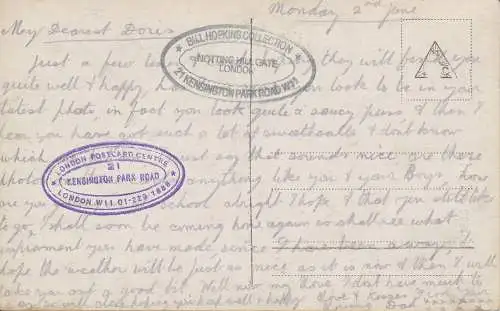 Monday 2nd June
My Dearest Doris
Just a few lines they will find you
quite well & happy you look to be in your
latest photo in fact you look quite a saucy puss & then I
hear you have got such a lot of sweethearts & I dont know
which say that sounds nice are there
photo anything like you & your Boys, how
are you school alright I hope & that you still like
to go, I shall soon be coming home again so shall see what
improvement you have made since I have been away, I
hope the weather will be just as nice as it is now & then I will
take you out a good bit. Well now my Dear I dont have much to
say so will close hoping your keep well & happy Love & Kisses from Your
Loving Dad
BILL HOPKINS COLLECTION
NOTTING HILL GATE
LONDON
21 KENSINGTON PARK ROAD W11
LONDON POSTCARD CENTRE
21
KENSINGTON PARK ROAD
LONDON W11 01-229 1888